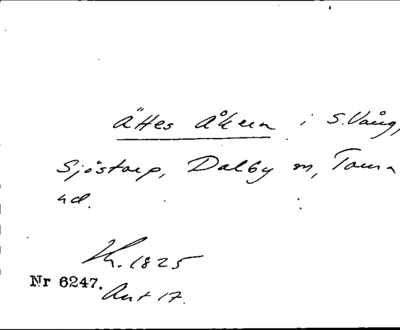 Åttes Åkern i S.Vång,
Sjöstorp, Dalby sn, Torna
hd.
Kh. 1825
Nr 6247. Akt 17.